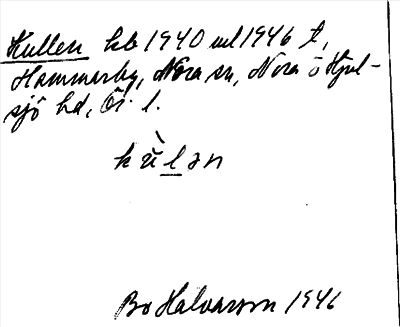 Kullen hb 1940 ul 1946 t,
Hammarby, Nora sn, Nora o Hjul-
sjö hd, Ör. l.
kù̀lən
Bo Halvarson 1946